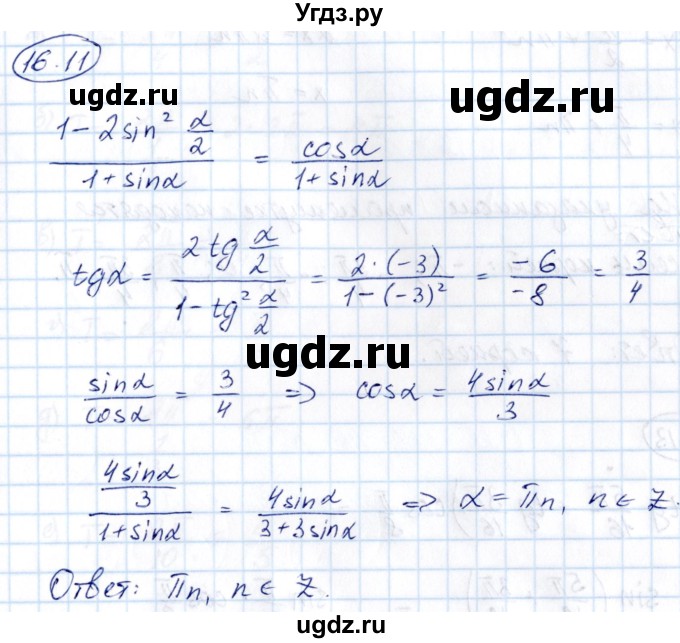 Угдз.ру
16.11
ugdz.ru ugdz.ru
(1 - 2sin² α/2)/(1 + sinα) = cosα/(1 + sinα)
tgα = (2tg α/2)/(1 - tg² α/2) = (2·(-3))/(1-(-3)²) = -6/-8 = 3/4
ugdz.ru
sinα/cosα = 3/4 => cosα = 4sinα/3
(4sinα/3)/(1+sinα) = 4sinα/(3+3sinα) => α = πn, n ∈ Z.
ugdz.ru
Ответ: πn, n ∈ Z.
ugdz.ru